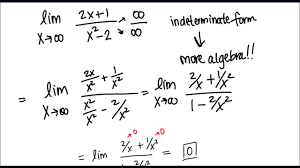 lim x→∞ (2x+1)/(x²-2) → ∞/∞ indeterminate form
more algebra!!
= lim x→∞ (2x/x² + 1/x²)/(x²/x² - 2/x²) = lim x→∞ (2/x + 1/x²)/(1 - 2/x²)
= lim (2/x→0 + 1/x²→0)/ = 0